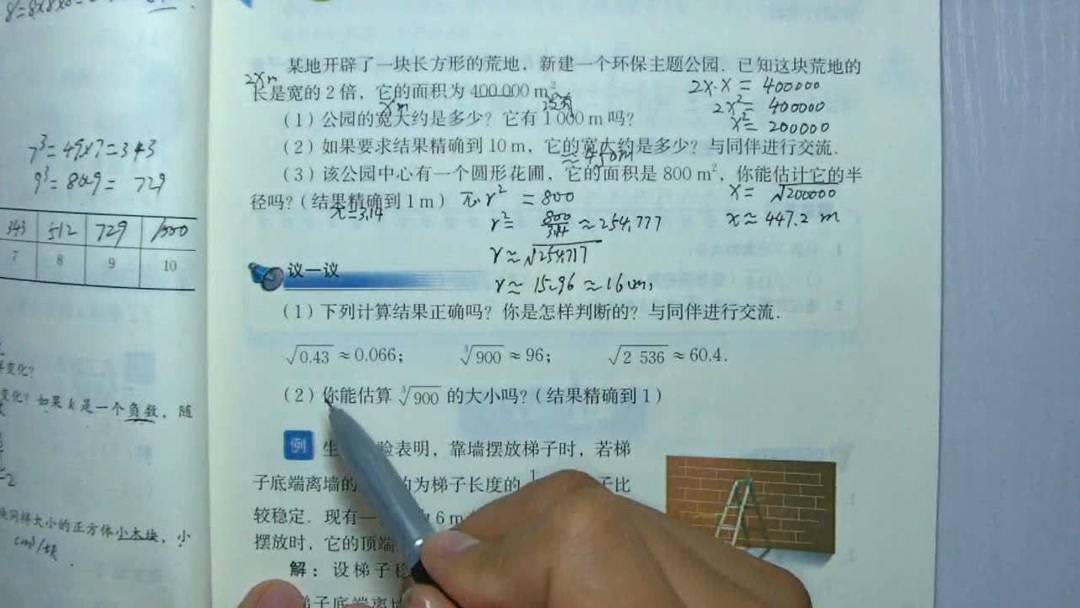 某地开辟了一块长方形的荒地，新建一个环保主题公园．已知这块荒地的
2x m
长是宽的 2 倍，它的面积为 400 000 m²．
2x·x = 400000
x m
没有
2x² = 400000
（1）公园的宽大约是多少？它有 1 000 m 吗？
x² = 200000
（2）如果要求结果精确到 10 m，它的宽大约是多少？与同伴进行交流．
≈ 450m
（3）该公园中心有一个圆形花圃，它的面积是 800 m²，你能估计它的半
径吗？（结果精确到 1 m）
πr² = 800
x = √200000
π=3.14
r² = 800/3.14 ≈ 254.777
x ≈ 447.2 m
r ≈ √254.777
r ≈ 15.96 ≈ 16
议一议
（1）下列计算结果正确吗？你是怎样判断的？与同伴进行交流．
√0.43 ≈ 0.066； ∛900 ≈ 96； √2 536 ≈ 60.4．
（2）你能估算 ∛900 的大小吗？（结果精确到 1）
例 生 验表明，靠墙摆放梯子时，若梯
子底端离墙的 约为梯子长度的 子比
较稳定．现有一 6 m
摆放时，它的顶端
解：设梯子稳
梯子底端离墙
7³ = 49×7 = 343
9³ = 80×9 = 729
343 512 729 1000
7 8 9 10
变化？
变化？如果 k 是一个负数，随
同样大小的正方体小木块，小
cm³/块